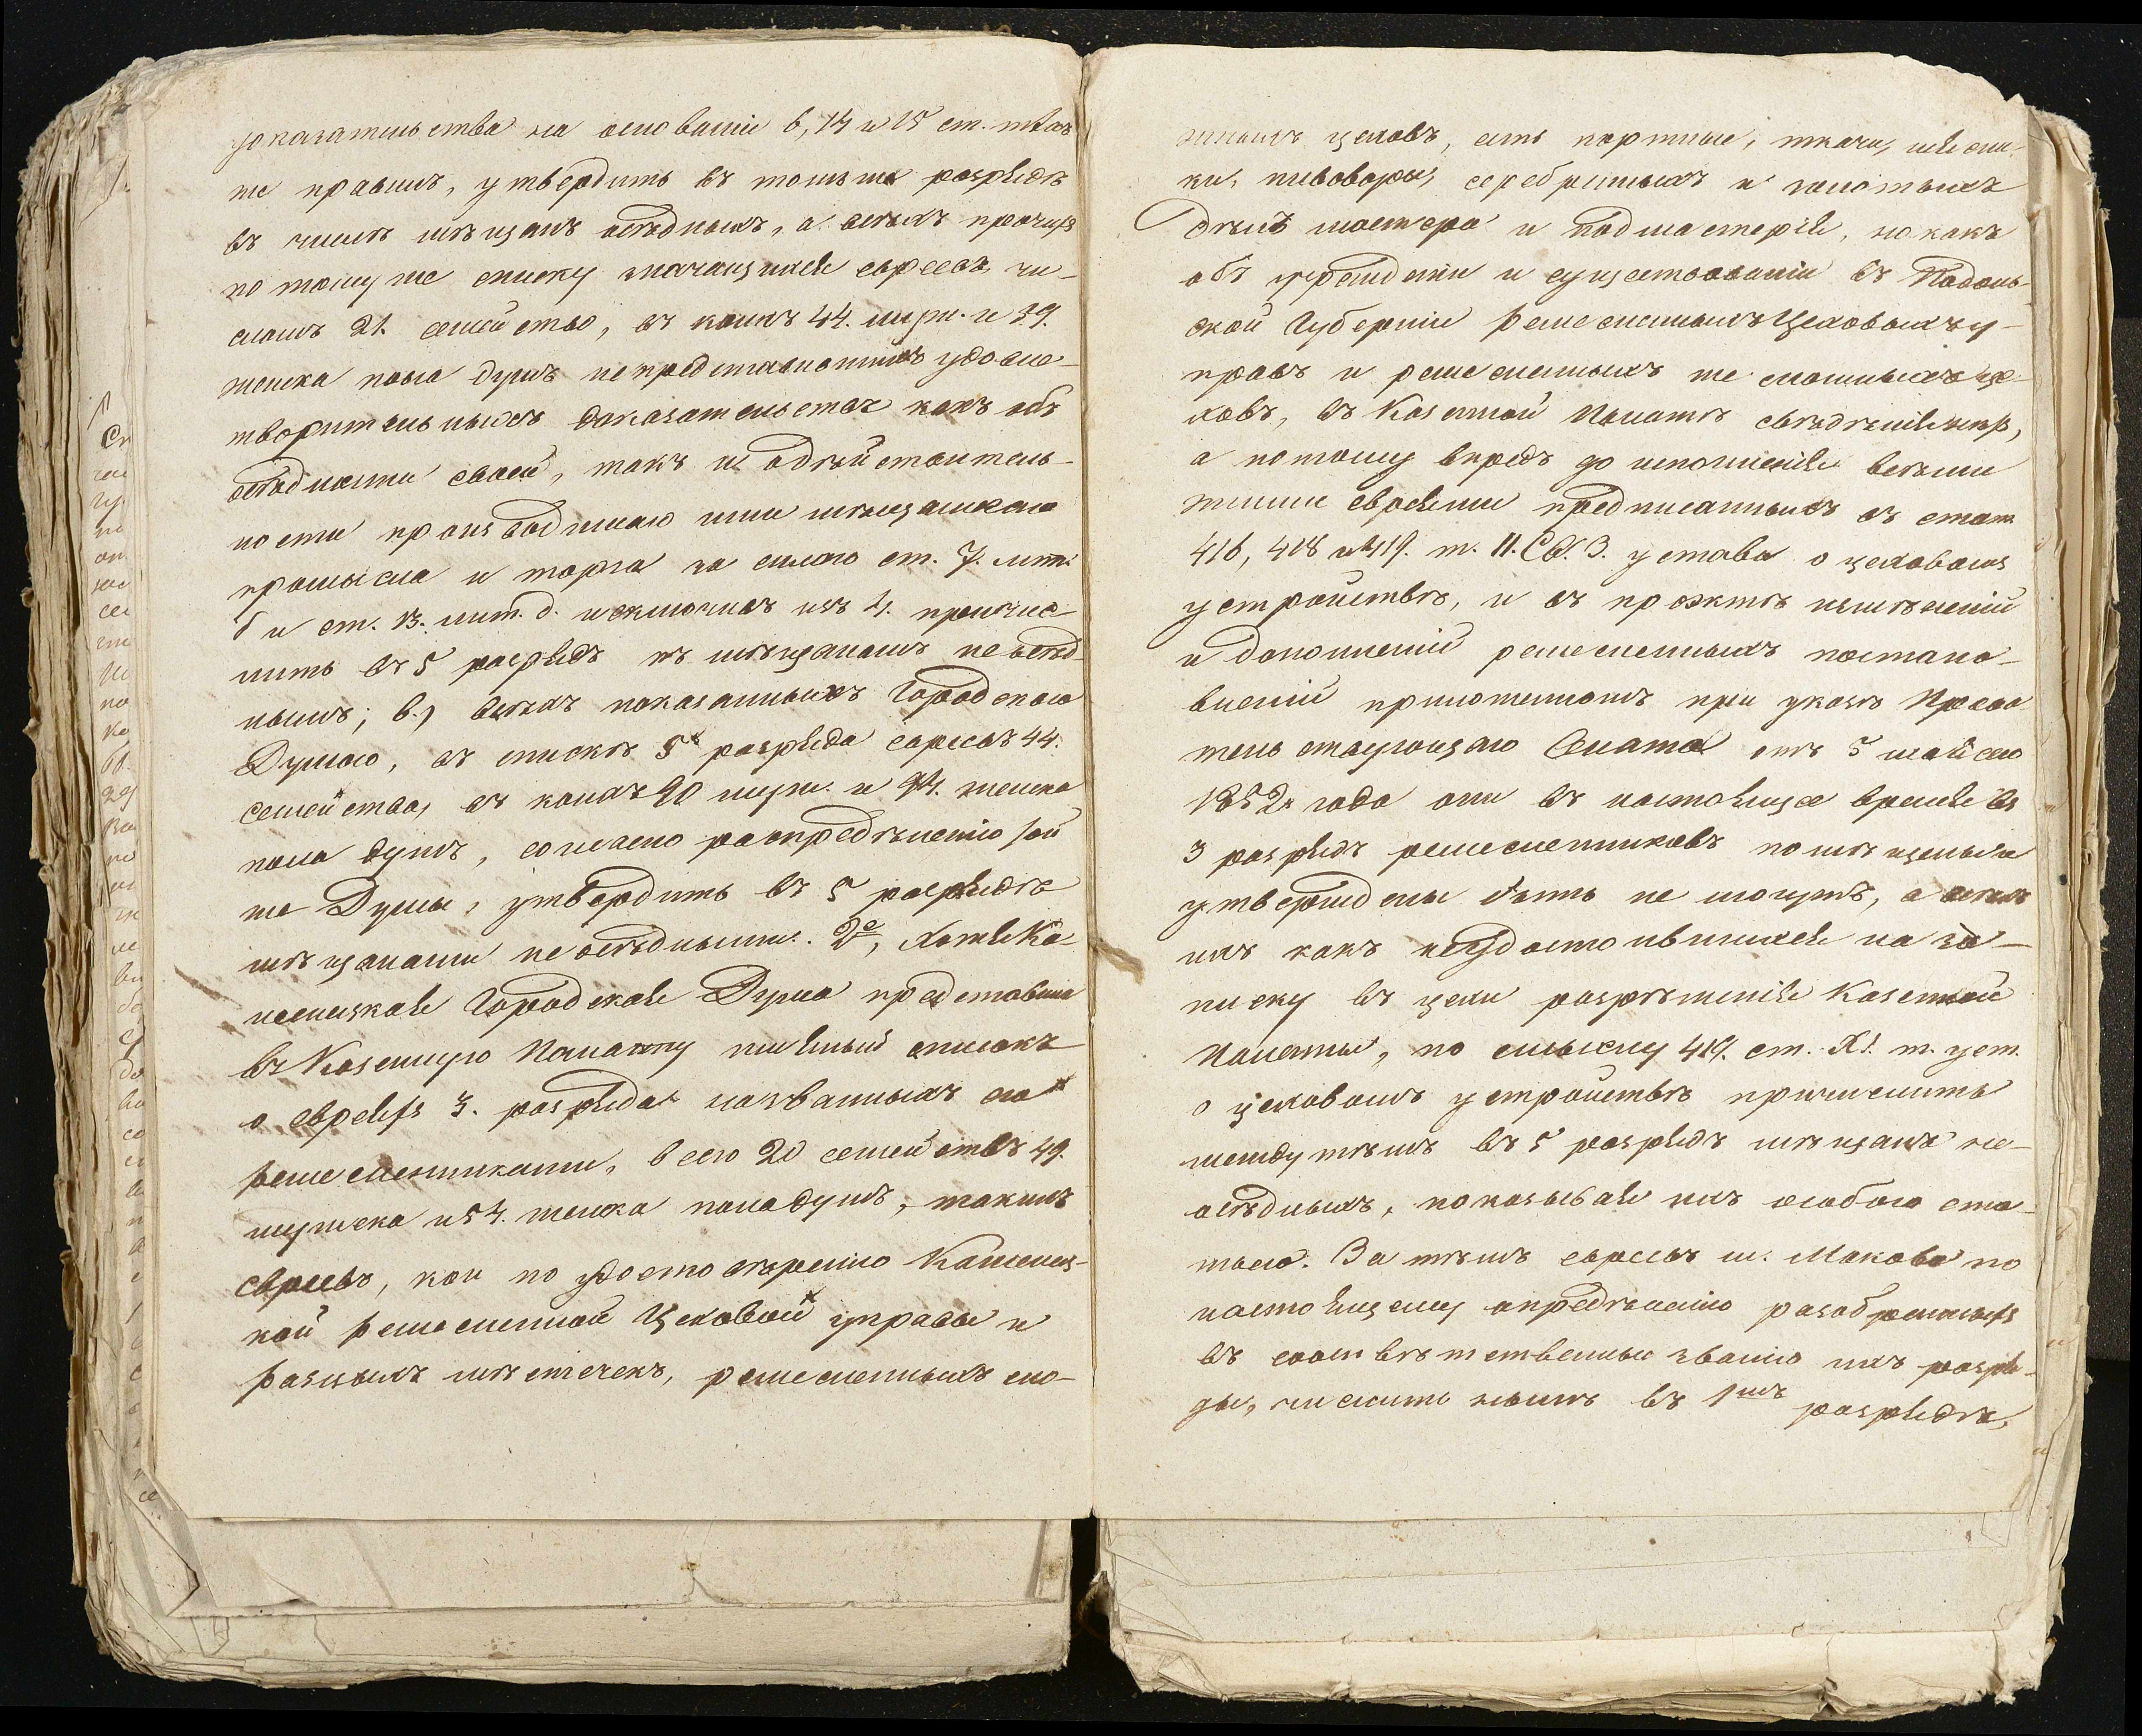 доказательства на основаніи 6, 14 и 15 ст. тѣхъ
же правилъ, утвердить въ томъ же разрядѣ
въ числѣ мѣщанъ осѣдлыхъ, а всѣхъ прочихъ
по тому же списку значащихся евреевъ чи-
сломъ 21. семейство, въ коихъ 44. муж. и 39.
женска пола душъ непредставившихъ удовле-
творительныхъ доказательствъ какъ объ
осѣдлости своей, такъ и о дѣйствитель-
ности производимаго ими мѣщанскаго
промысла и торга за силою ст. 7. лит.
б и ст. 13. лит. д. исключивъ изъ 4. причис-
лить въ 5 разрядъ къ мѣщанамъ неосѣд-
лымъ; в.) всѣхъ показанныхъ Городскою
Думою, въ спискѣ 5 разряда евреевъ 44.
семейства, въ коихъ 90 муж. и 94. женска
пола душъ, согласно распредѣленію той
же Думы, утвердить въ 5 разрядѣ
мѣщанами неосѣдлыми. 2е, Хотя Ка-
менецкая Городская Дума представила
въ Казенную Палату имянный списокъ
о евреяхъ 3. разряда названныхъ ею
ремесленниками, всего 20 семействъ 49.
мужска и 54. женска пола душъ, таковые
евреевъ, кои по удостовѣренію Каменец-
кой Ремесленной Цеховой управы и
разныхъ мѣстечекъ, ремесленныхъ сло-
жныхъ цеховъ, есть портные, ткачи,
ки, пивовары, серебряныхъ и золотыхъ
дѣлъ мастера и подмастерья, но какъ
объ учрежденіи и существованіи въ Подоль-
ской Губерніи Ремесленныхъ Цеховыхъ у-
правъ и ремесленныхъ же сложныхъ це-
ховъ, въ Казенной Палатѣ свѣдѣнія нѣтъ,
а потому впредь до исполненія всѣми
тѣми евреями предписанныхъ въ стат.
416, 418 и 419. т. 11. Св. З. устава о цеховомъ
устройствѣ, и въ проэктѣ измѣненій
и дополненій ремесленныхъ постано-
вленій приложенномъ при указѣ Прави-
тельствующаго Сената отъ 5 майско
1852 года они въ настоящее время въ
3 разрядъ ремесленниковъ помѣщены и
утверждены быть не могутъ, а всѣхъ
ихъ какъ неудостоившихся на за-
писку въ цехи разрѣшенія Казенной
Палаты, по смыслу 419. ст. XI. т. уст.
о цеховомъ устройствѣ причислить
между тѣмъ въ 5 разрядъ мѣщанъ не-
осѣдлыхъ, показывая ихъ особою ста-
тьею. За тѣмъ евреевъ м. Макова по
настоящему опредѣленію разобранныхъ
въ соотвѣтственные званію ихъ разря-
ды, числить нынѣ въ 1мъ разрядѣ,